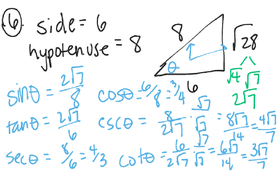 ⑥ side = 6
hypotenuse = 8
8
√28
θ
6
√4 √7
2√7
sinθ = 2√7/8
cosθ = 6/8 = 3/4
tanθ = 2√7/6
cscθ = 8/2√7 · √7/√7 = 8√7/14 = 4√7/7
secθ = 8/6 = 4/3
cotθ = 6/2√7 · √7/√7 = 6√7/14 = 3√7/7